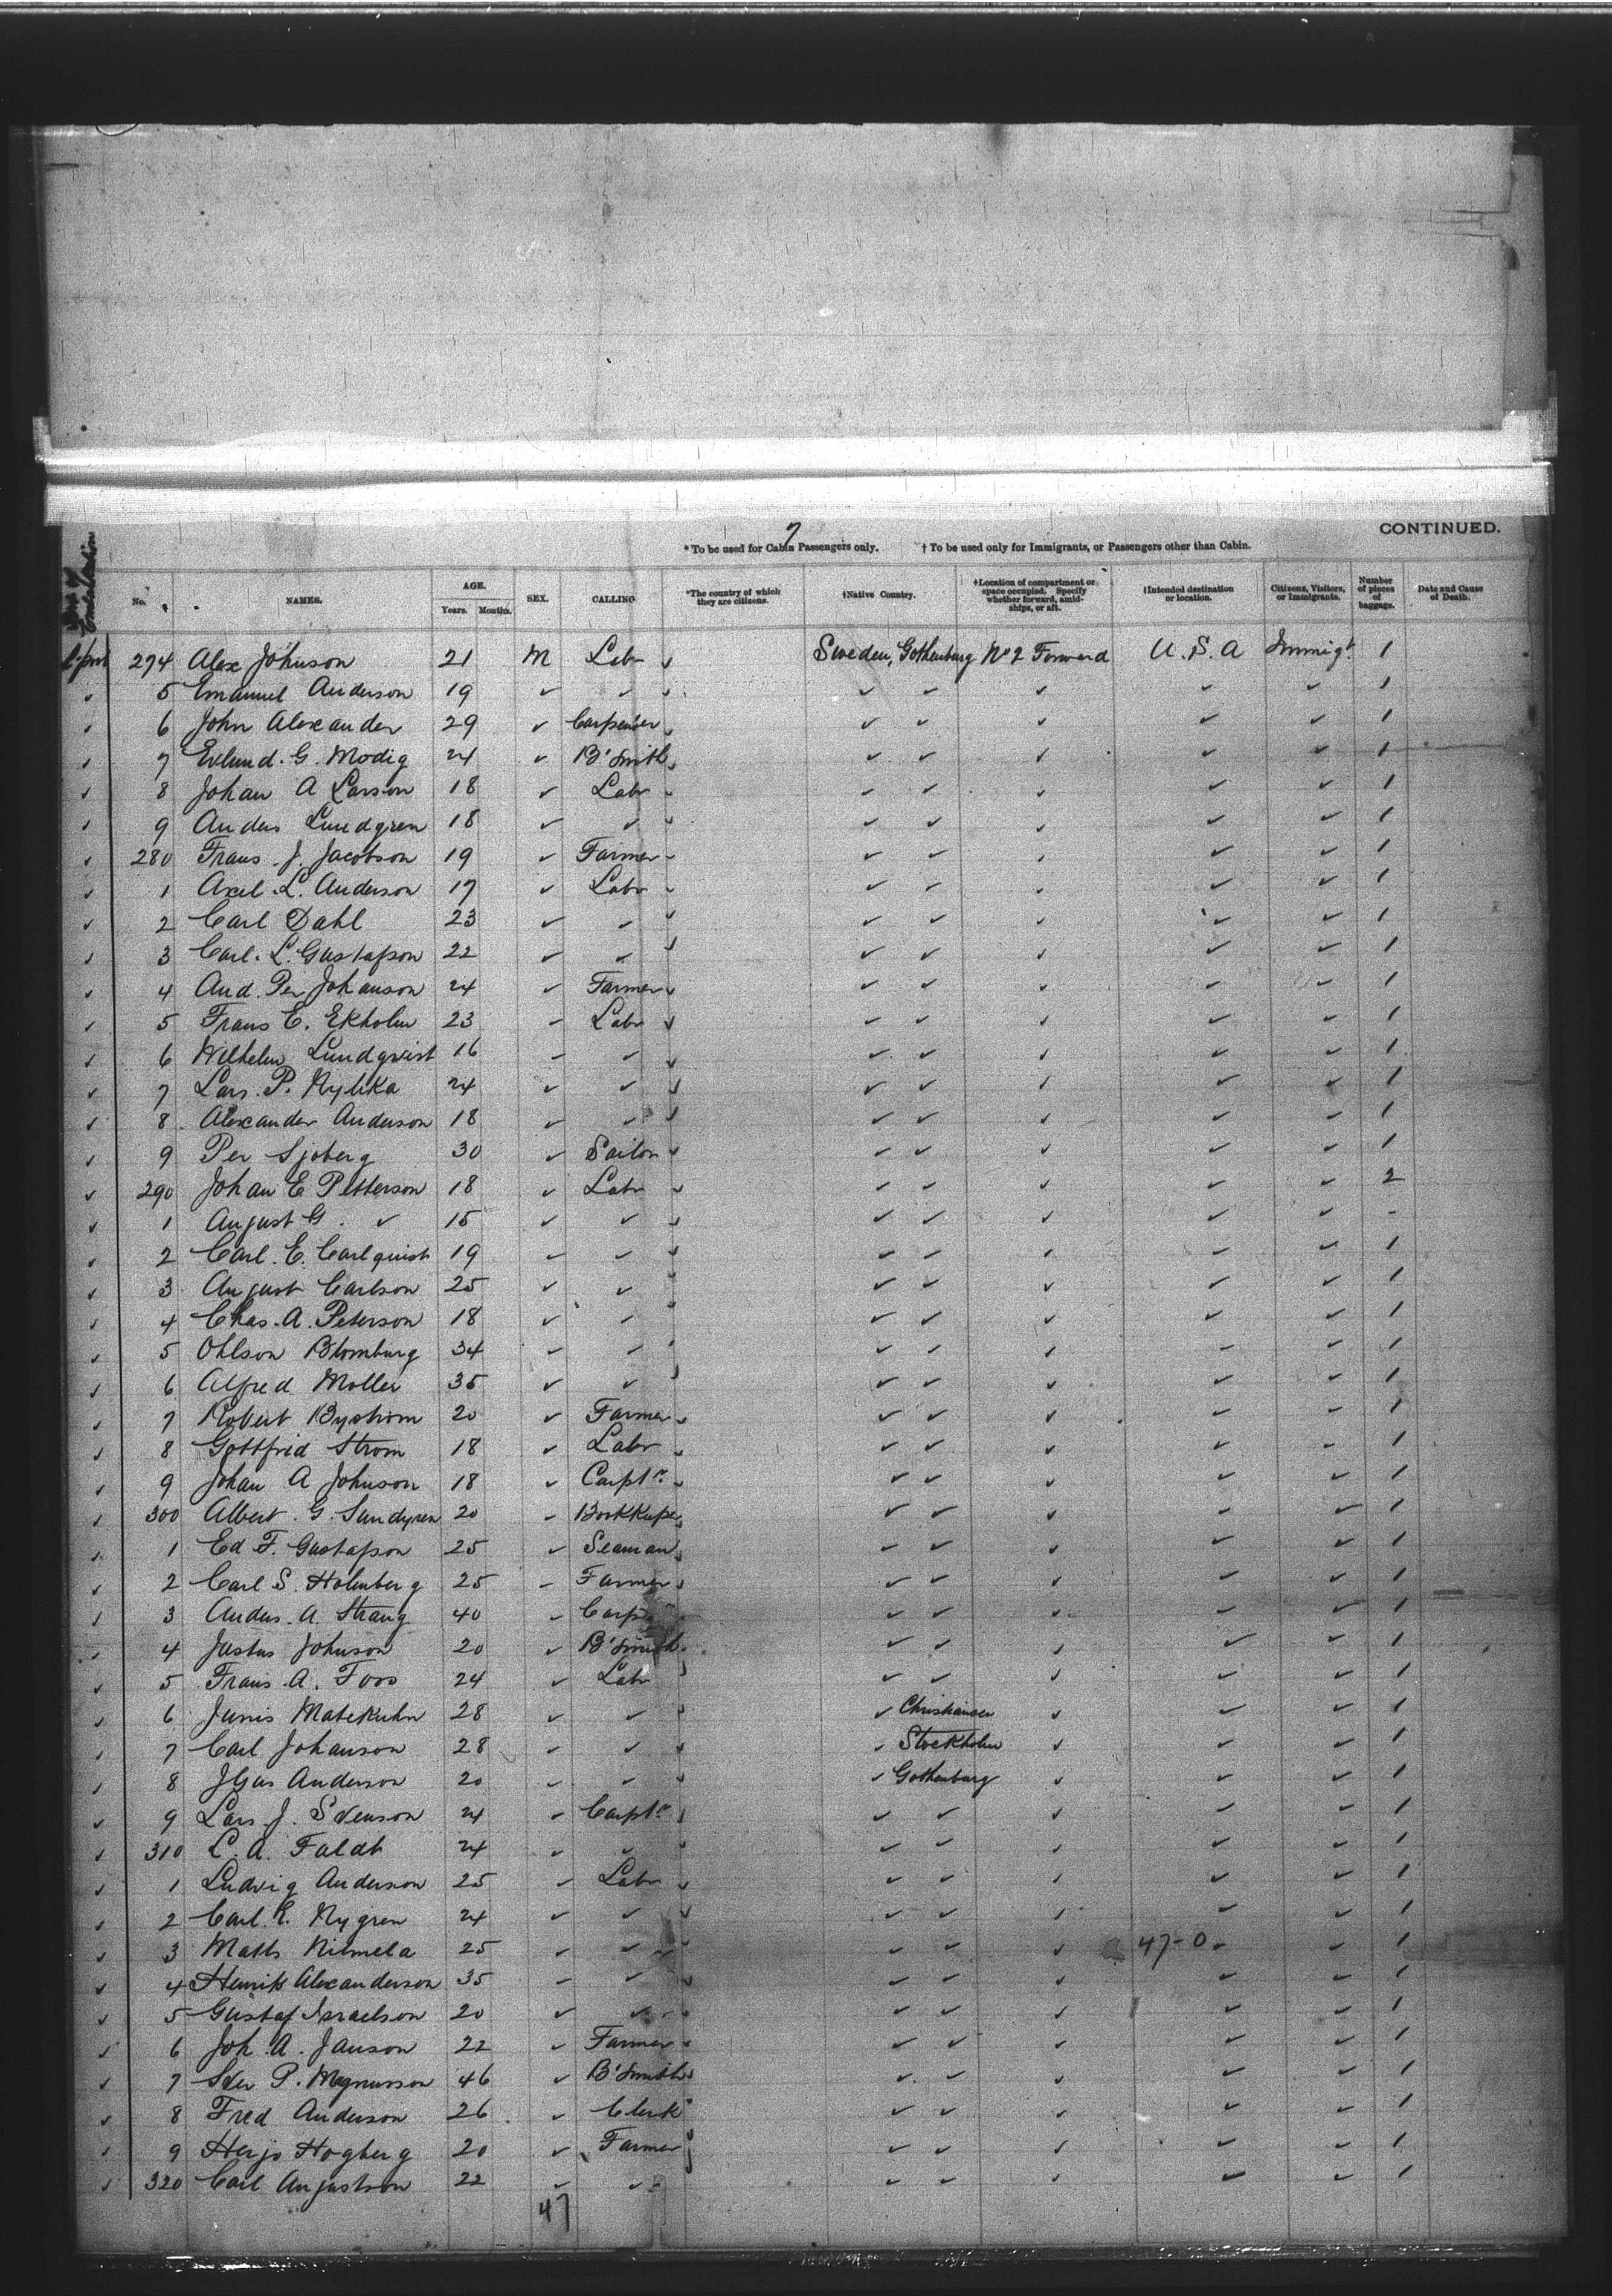 7
CONTINUED.
*To be used for Cabin Passengers only. † To be used only for Immigrants, or Passengers other than Cabin.
No. NAMES. AGE. Years. Months. SEX. CALLING *The country of which they are citizens. †Native Country. †Location of compartment or space occupied. Specify whether forward, amidships, or aft. †Intended destination or location. Citizens, Visitors, or Immigrants. Number of pieces of baggage. Date and Cause of Death.
274 Alex Johnson 21 M Labr Sweden, Gothenburg No 2 Forward U.S.A Immigt. 1
✓ 5 Emanuel Anderson 19 ✓ ✓ ✓ ✓ ✓ ✓ ✓ 1
✓ 6 John Alexander 29 ✓ Carpenter ✓ ✓ ✓ ✓ ✓ 1
✓ 7 Evlund. G. Modig 24 ✓ B'Smith ✓ ✓ ✓ ✓ ✓ 1
✓ 8 Johan A Larson 18 ✓ Labr ✓ ✓ ✓ ✓ ✓ 1
✓ 9 Anders Lundgren 18 ✓ ✓ ✓ ✓ ✓ ✓ ✓ 1
✓ 280 Frans. J. Jacobson 19 ✓ Farmer ✓ ✓ ✓ ✓ ✓ 1
✓ 1 Axel L. Anderson 17 ✓ Labr ✓ ✓ ✓ ✓ ✓ 1
✓ 2 Carl Dahl 23 ✓ ✓ ✓ ✓ ✓ ✓ ✓ 1
✓ 3 Carl. L. Gustafson 22 ✓ ✓ ✓ ✓ ✓ ✓ ✓ 1
✓ 4 And. Per Johanson 24 ✓ Farmer ✓ ✓ ✓ ✓ ✓ 1
✓ 5 Frans E. Ekholm 23 ✓ Labr ✓ ✓ ✓ ✓ ✓ 1
✓ 6 Wilhelm Lundqvist 16 ✓ ✓ ✓ ✓ ✓ ✓ ✓ 1
✓ 7 Lars. P. 24 ✓ ✓ ✓ ✓ ✓ ✓ ✓ 1
✓ 8 Alexander Anderson 18 ✓ ✓ ✓ ✓ ✓ ✓ ✓ 1
✓ 9 Per Sjoberg 30 ✓ Sailor ✓ ✓ ✓ ✓ ✓ 1
✓ 290 Johan E Petterson 18 ✓ Labr ✓ ✓ ✓ ✓ ✓ 2
✓ 1 August G. ✓ 15 ✓ ✓ ✓ ✓ ✓ ✓ ✓ -
✓ 2 Carl. E. Carlquist 19 ✓ ✓ ✓ ✓ ✓ ✓ ✓ 1
✓ 3 August Carlson 25 ✓ ✓ ✓ ✓ ✓ ✓ ✓ 1
✓ 4 Chas. A. Peterson 18 ✓ ✓ ✓ ✓ ✓ ✓ ✓ 1
✓ 5 Ohlson Blomburg 34 ✓ ✓ ✓ ✓ ✓ ✓ ✓ 1
✓ 6 Alfred Moller 35 ✓ ✓ ✓ ✓ ✓ ✓ ✓ 1
✓ 7 Robert Bystrom 20 ✓ Farmer ✓ ✓ ✓ ✓ ✓ 1
✓ 8 Gottfrid Strom 18 ✓ Labr ✓ ✓ ✓ ✓ ✓ 1
✓ 9 Johan A Johnson 18 ✓ Carptr. ✓ ✓ ✓ ✓ ✓ 1
✓ 300 Albert. G. Sundgren 20 ✓ ✓ ✓ ✓ ✓ ✓ 1
✓ 1 Ed F. Gustafson 25 ✓ Seaman ✓ ✓ ✓ ✓ ✓ 1
✓ 2 Carl S. Holmberg 25 ✓ Farmer ✓ ✓ ✓ ✓ ✓ 1
✓ 3 Anders. A. Strang 40 ✓ ✓ ✓ ✓ ✓ ✓ 1
✓ 4 Justus Johnson 20 ✓ B'Smith ✓ ✓ ✓ ✓ ✓ 1
✓ 5 Frans. A. Foss 24 ✓ Labr ✓ ✓ ✓ ✓ ✓ 1
✓ 6 28 ✓ ✓ ✓ ✓ ✓ ✓ 1
✓ 7 Carl Johanson 28 ✓ ✓ ✓ Stockholm ✓ ✓ ✓ 1
✓ 8 Anderson 20 ✓ ✓ ✓ Gothenburg ✓ ✓ ✓ 1
✓ 9 Lars. J. Svenson 24 ✓ Carptr ✓ ✓ ✓ ✓ ✓ 1
✓ 310 L. A. Faldt 24 ✓ ✓ ✓ ✓ ✓ ✓ ✓ 1
✓ 1 Ludvig Anderson 25 ✓ Labr ✓ ✓ ✓ ✓ ✓ 1
✓ 2 Carl. R. Nygren 24 ✓ ✓ ✓ ✓ ✓ ✓ ✓ 1
✓ 3 Matts Nilmela 25 ✓ ✓ ✓ ✓ ✓ 47-0 ✓ ✓ 1
✓ 4 Henrik Alexanderson 35 ✓ ✓ ✓ ✓ ✓ ✓ ✓ 1
✓ 5 Gustaf Israelson 20 ✓ ✓ ✓ ✓ ✓ ✓ ✓ 1
✓ 6 Joh. A. Janson 22 ✓ Farmer ✓ ✓ ✓ ✓ ✓ 1
✓ 7 P. Magnusson 46 ✓ B'Smith ✓ ✓ ✓ ✓ ✓ 1
✓ 8 Fred Anderson 26 ✓ Clerk ✓ ✓ ✓ ✓ ✓ 1
✓ 9 Hogberg 20 ✓ Farmer ✓ ✓ ✓ ✓ ✓ 1
✓ 320 Carl Augustson 22 ✓ ✓ ✓ ✓ ✓ ✓ ✓ 1
47